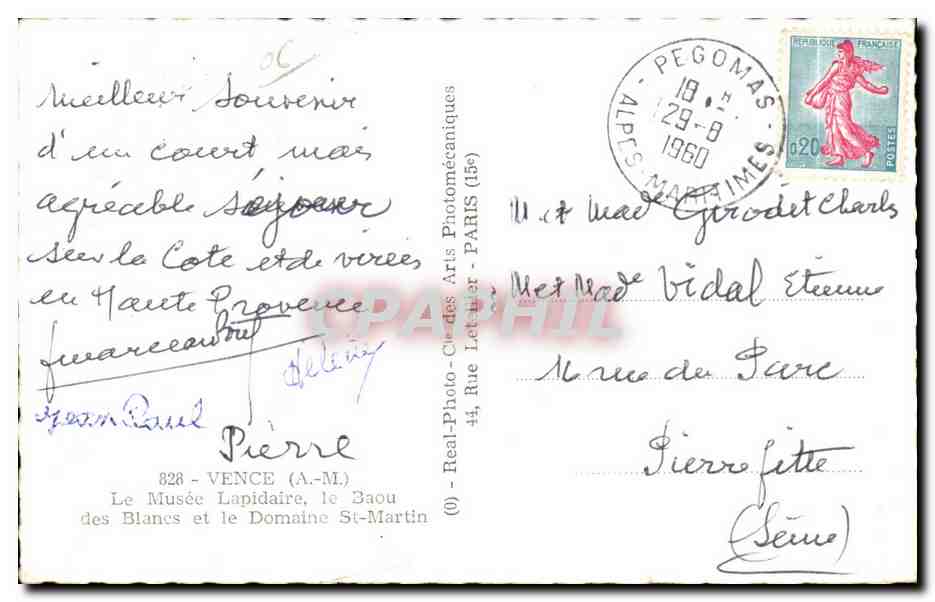 06
Meilleur souvenir
d'un court mais
agréable séjour
sur la Cote et de virées
en Haute Provence
Helene
Jean Paul
Pierre
828 - VENCE (A.-M.)
Le Musée Lapidaire, le Baou
des Blancs et le Domaine St-Martin
(O) - Real-Photo - Cie des Arts Photomécaniques
44, Rue Letellier - PARIS (15e)
CPAPHIL
PEGOMAS
18
29-8
1960
ALPES-MARITIMES
REPUBLIQUE FRANÇAISE
0,20
POSTES
M et Made Girodet Charles
M et Made Vidal Etienne
rue du Parc
Pierrefitte
(Seine)